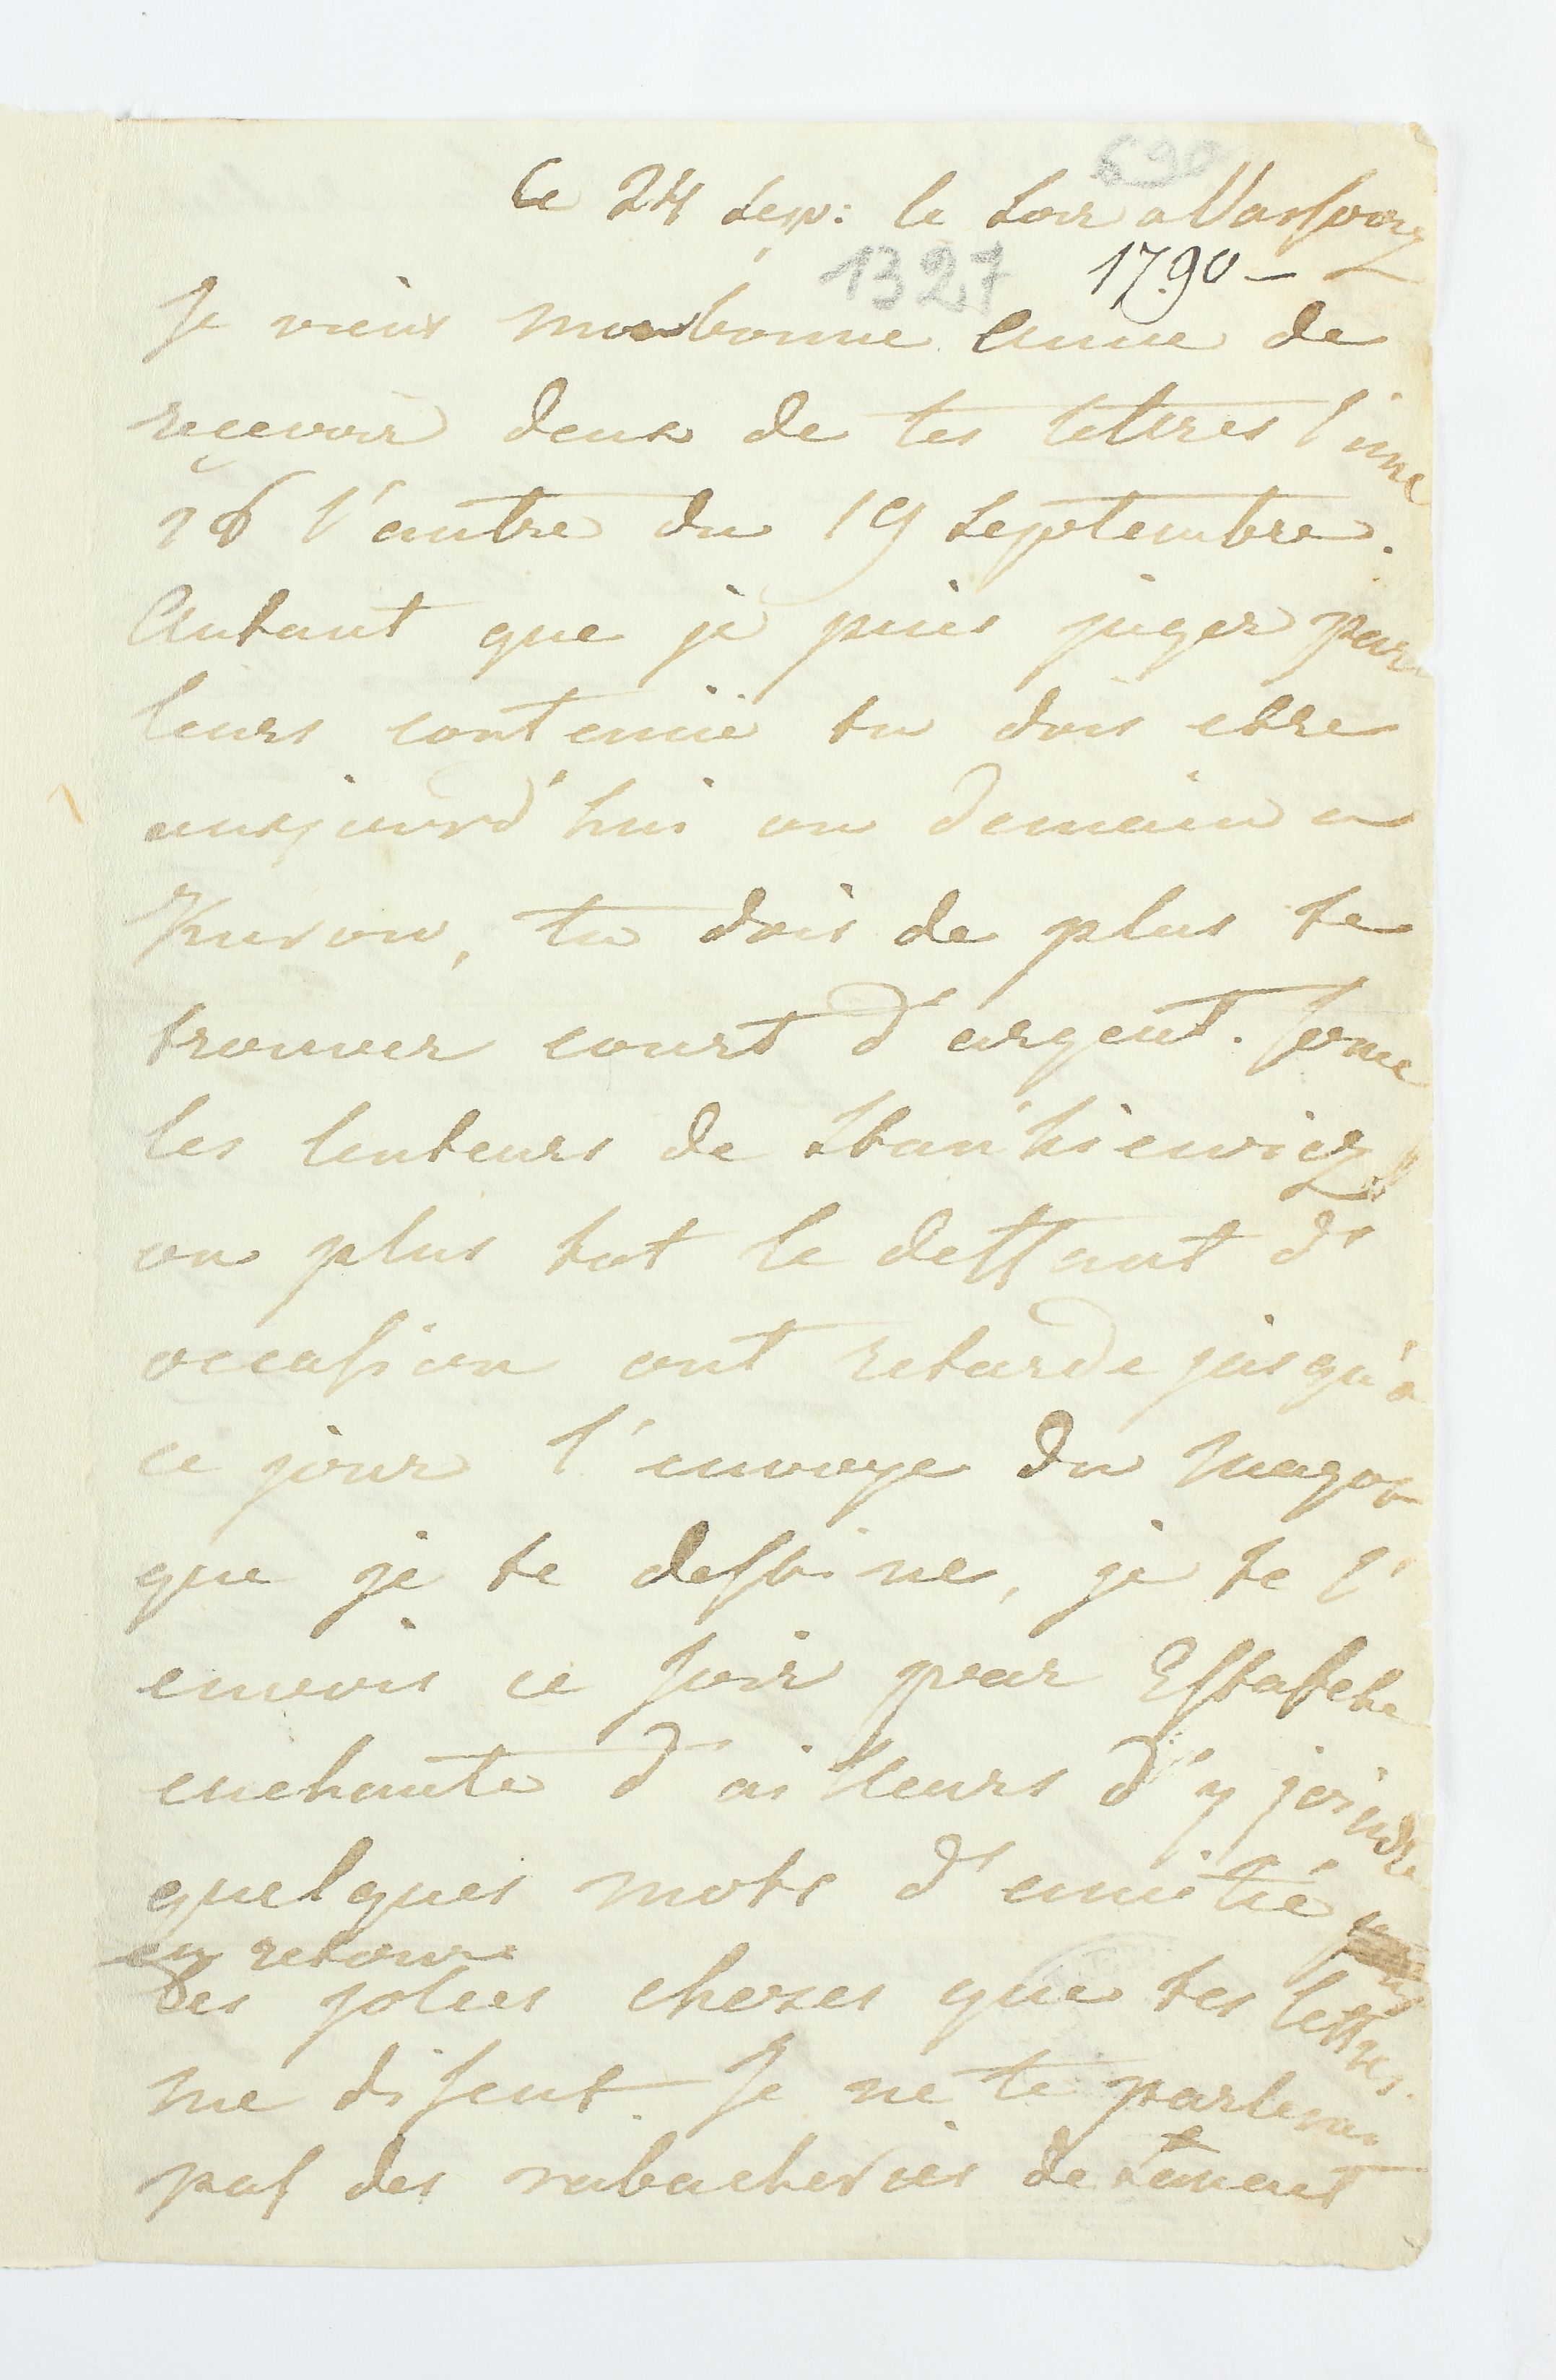 690
Ce 24 Sep: le Soir a Varsovie
1327 1790 –
Je viens ma bonne Amie de
recevoir deux de tes lettres l'une
16 l'autre du 19 Septembre.
Autant que je puis juger par
leurs contenüe tu dois etre
aujourd'hui ou demain a
Kurow, tu dois de plus te
trouver court d'argent. Comme
les lenteurs de Stankiewicz
ou plus tot le deffaut d'
occasion ont retarde jusqu'a
ce jour l'envoye du magot
que je te destine, je te l'
envois ce soir par Estafete
enchante d'ailleurs d'y joindre
quelques mots d'amitié
en retour
des jolies choses que tes lettres
me disent. Je ne te parlerai
pas des rabacheries de